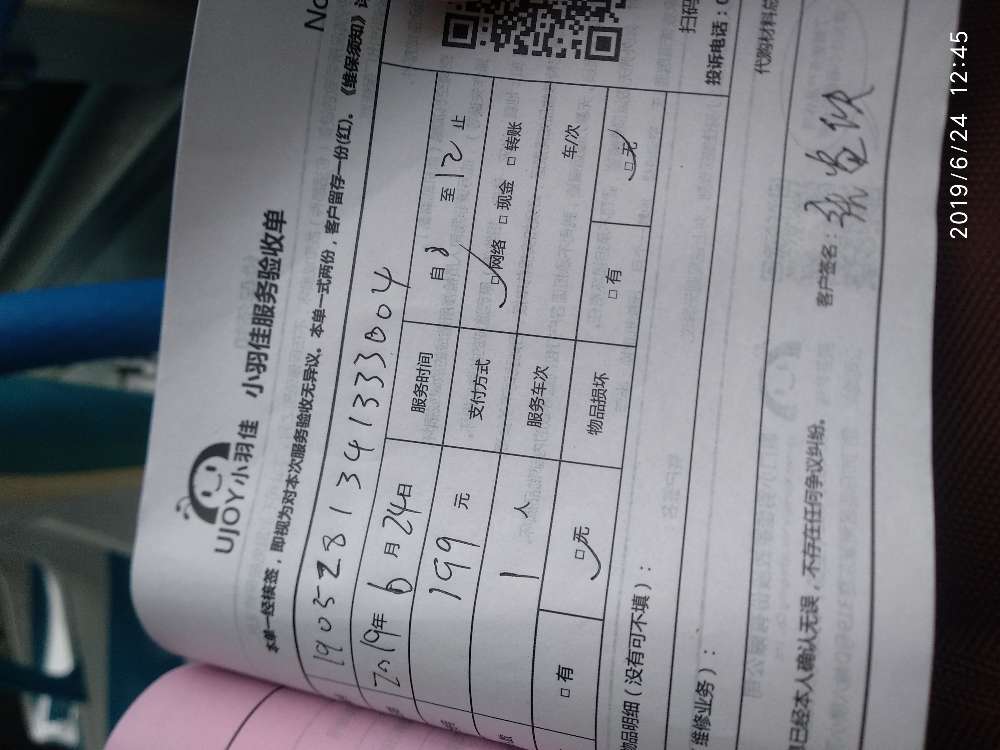 No
UJOY小羽佳 小羽佳服务验收单
本单一经核签，即视为对本次服务验收无异议。本单一式两份，客户留存一份(红)。《维保须知》
2019年6月24日 服务时间 自8至12止
199元 支付方式 □网络 □现金 □转账
1人 服务车次 车/次
□有 □无 物品损坏 □有 □无
物品明细（没有可不填）：
(维修业务)：
扫码
投诉电话：0
代购材料总
已经本人确认无误，不存在任何争议纠纷。
客户签名：
2019/6/24 12:45